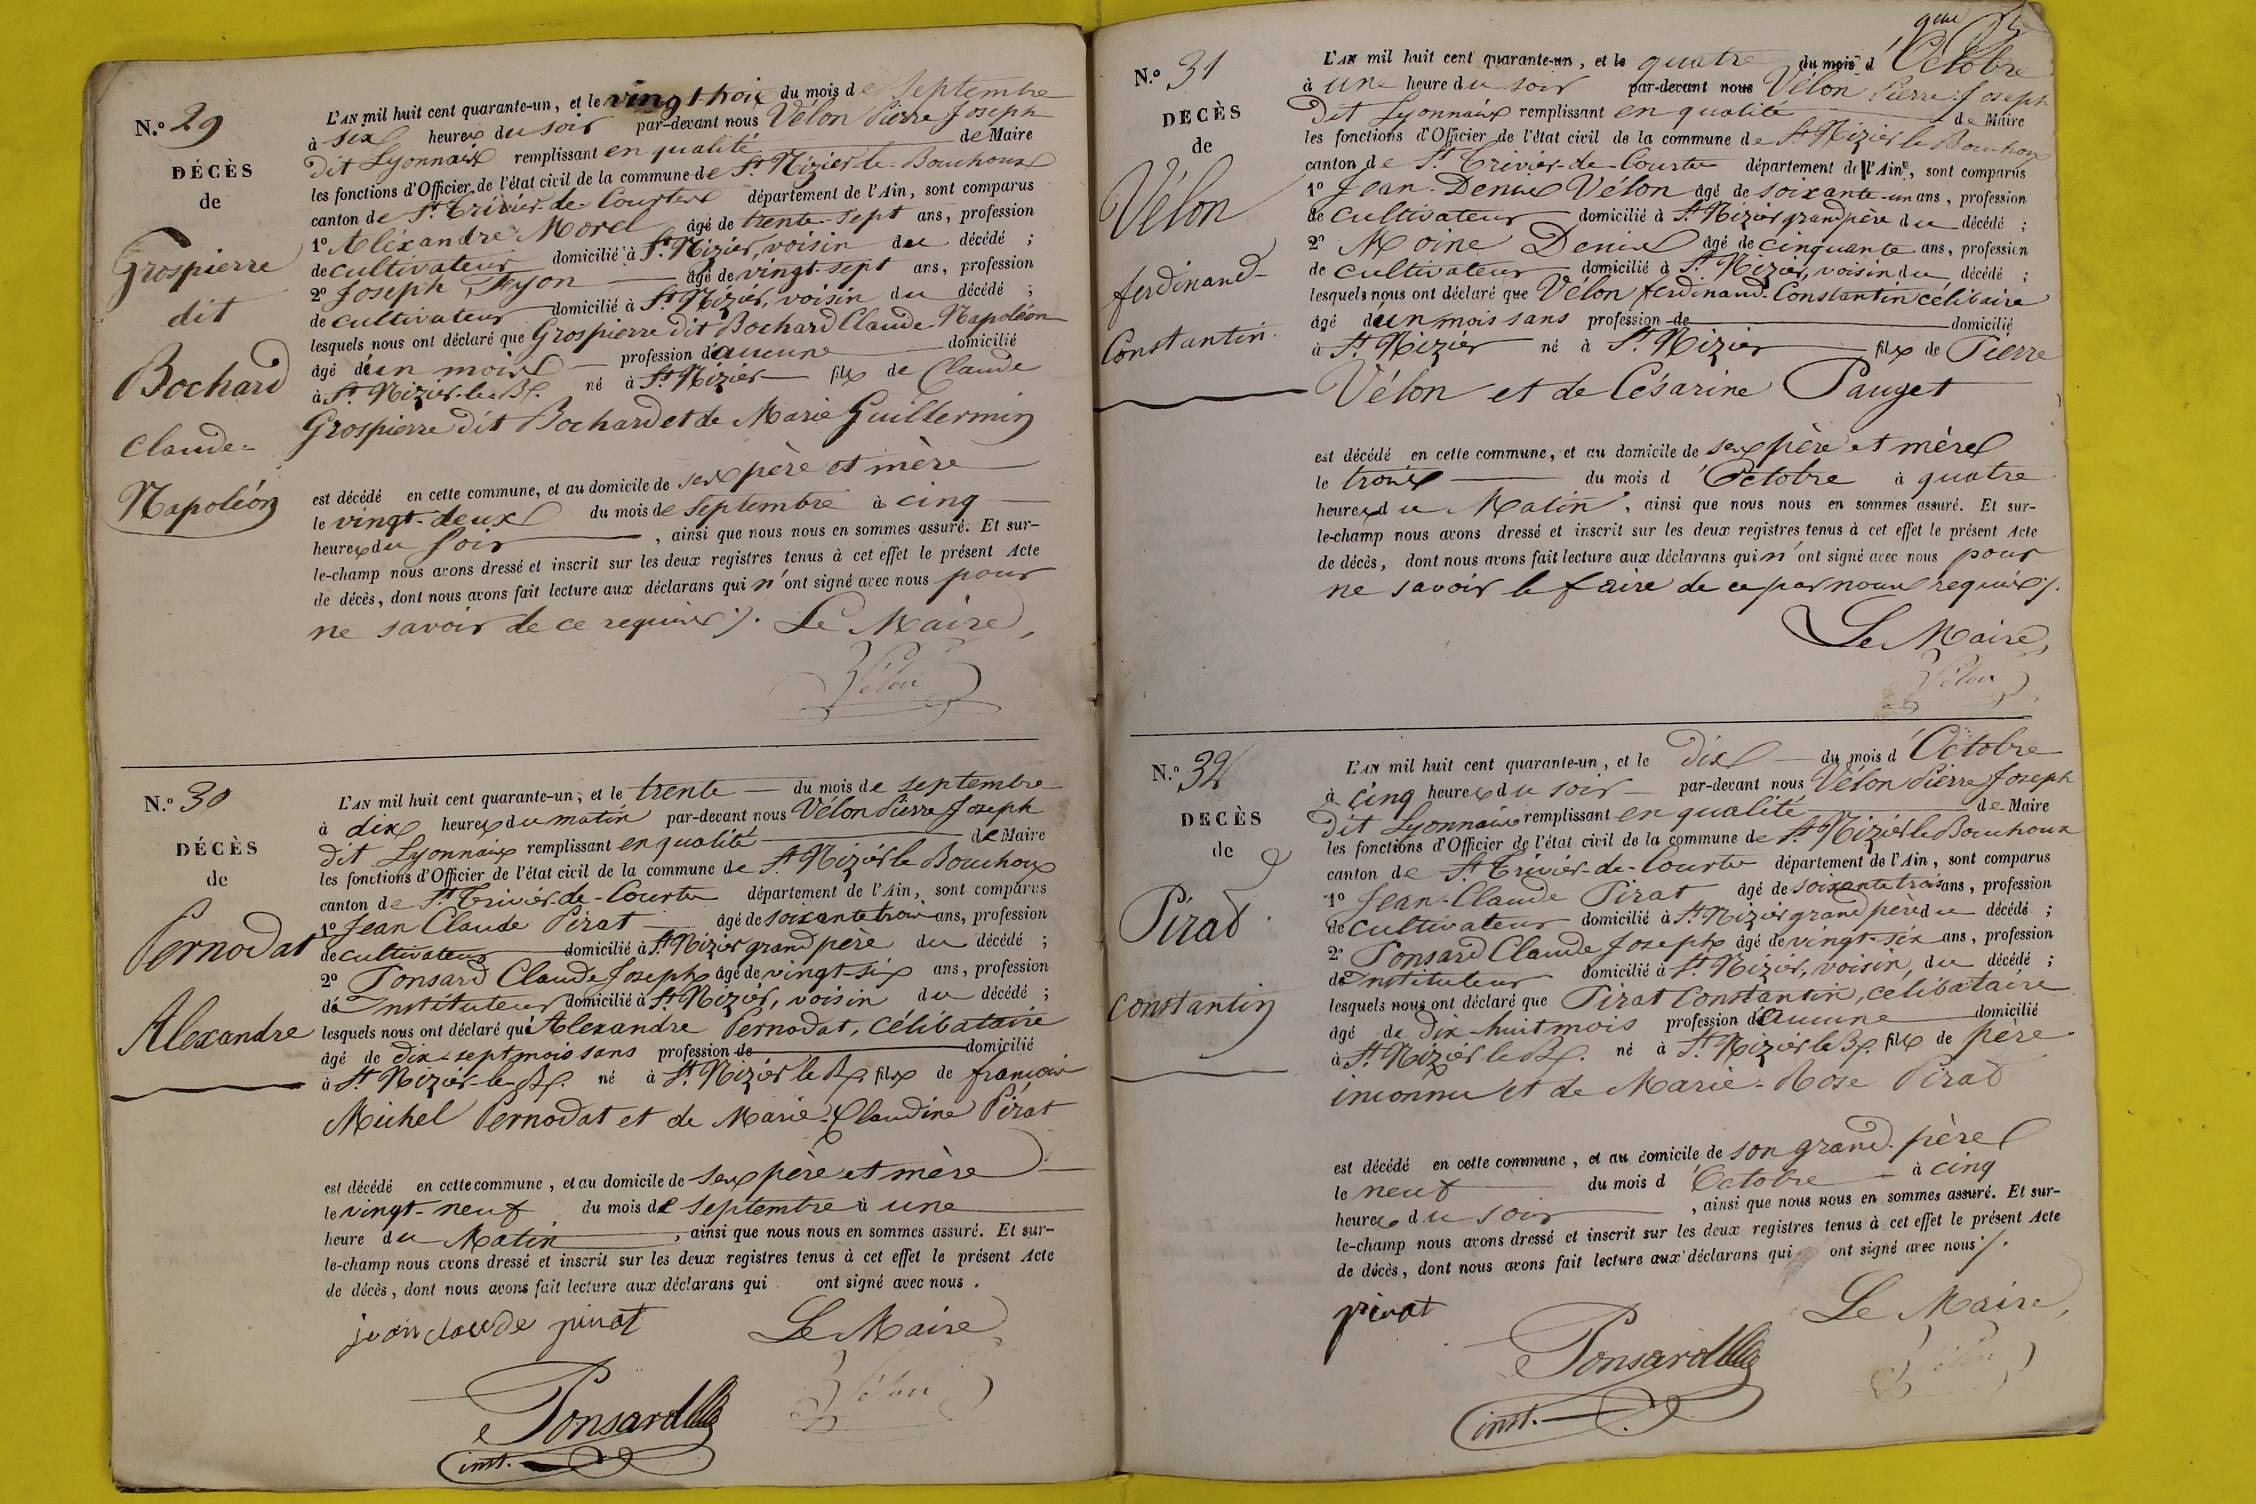 N.º 29
DÉCÈS
de
Grospierre
dit
Bochard
Claude-
Napoléon
L'AN mil huit cent quarante-un, et le vingt trois du mois de Septembre
à six heures du soir par-devant nous Vélon Pierre Joseph
Dit Lyonnais remplissant en qualité de Maire
les fonctions d'Officier de l'état civil de la commune de St. Nizier-le-Bouchoux
canton de St. Trivier-de-Courtes département de l'Ain, sont comparus
1º Aléxandre Morel âgé de trente-sept ans, profession
de cultivateur domicilié à St. Nizier, voisin du décédé ;
2º Joseph Fyon âgé de vingt-sept ans, profession
de cultivateur domicilié à St. Nizier, voisin du décédé ;
lesquels nous ont déclaré que Grospierre dit Bochard Claude Napoléon
âgé d'un mois profession d'aucune domicilié
à St. Nizier-le-Bx. né à St. Nizier fils de Claude
Grospierre dit Bochard et de Marie Guillermin
est décédé en cette commune, et au domicile de ses père et mère
le vingt-deux du mois de septembre à cinq
heures du soir , ainsi que nous nous en sommes assuré. Et sur-
le-champ nous avons dressé et inscrit sur les deux registres tenus à cet effet le présent Acte
de décès, dont nous avons fait lecture aux déclarans qui n'ont signé avec nous pour
ne savoir de ce requis ./. Le Maire,
Vélon
N.º 30
DÉCÈS
de
Pernodat
Alexandre
L'AN mil huit cent quarante-un, et le trente du mois de septembre
à dix heures du matin par-devant nous Vélon Pierre Joseph
dit Lyonnais remplissant en qualité de Maire
les fonctions d'Officier de l'état civil de la commune de St. Nizier le Bouchoux
canton de St. Trivier-de-Courtes département de l'Ain, sont comparus
1º Jean Claude Pirat âgé de soixante trois ans, profession
de cultivateur domicilié à St. Nizier grand père du décédé ;
2º Ponsard Claude Joseph âgé de vingt-six ans, profession
de Instituteur domicilié à St. Nizier, voisin du décédé ;
lesquels nous ont déclaré que Alexandre Pernodat, célibataire
âgé de dix-sept mois sans profession de domicilié
à St. Nizier-le-Bx. né à St. Nizier le Bx. fils de françois
Michel Pernodat et de Marie-Claudine Pirat
est décédé en cette commune, et au domicile de ses père et mère
le vingt-neuf du mois de septembre à une
heure du Matin , ainsi que nous nous en sommes assuré. Et sur-
le-champ nous avons dressé et inscrit sur les deux registres tenus à cet effet le présent Acte
de décès, dont nous avons fait lecture aux déclarans qui ont signé avec nous .
jean claude pirat Le Maire,
Ponsard Vélon
inst.
N.º 31
DÉCÈS
de
Vélon
ferdinand-
Constantin.
L'AN mil huit cent quarante-un, et le quatre du mois d'Octobre
à une heure du soir par-devant nous Vélon Pierre Joseph
Dit Lyonnais remplissant en qualité de Maire
les fonctions d'Officier de l'état civil de la commune de St. Nizier le Bouchoux
canton de St. Trivier-de-Courtes département de l'Ain, sont comparus
1º Jean-Denis Vélon âgé de soixante-un ans, profession
de cultivateur domicilié à St. Nizier grand père du décédé ;
2º Moine Denis âgé de cinquante ans, profession
de cultivateur domicilié à St. Nizier, voisin du décédé ;
lesquels nous ont déclaré que Vélon ferdinand-Constantin célibaire
âgé d'un mois sans profession de domicilié
à St. Nizier né à St. Nizier fils de Pierre
Vélon et de Césarine Pauget
est décédé en cette commune, et au domicile de ses père et mère
le trois du mois d'Octobre à quatre
heures du Matin, ainsi que nous nous en sommes assuré. Et sur-
le-champ nous avons dressé et inscrit sur les deux registres tenus à cet effet le présent Acte
de décès, dont nous avons fait lecture aux déclarans qui n'ont signé avec nous pour
ne savoir le faire de ce par nous requis ./.
Le Maire,
Vélon
N.º 32
DÉCÈS
de
Pirat
Constantin
L'AN mil huit cent quarante-un, et le dix du mois d'Octobre
à cinq heures du soir par-devant nous Vélon Pierre Joseph
dit Lyonnais remplissant en qualité de Maire
les fonctions d'Officier de l'état civil de la commune de St. Nizier le Bouchoux
canton de St. Trivier-de-Courtes département de l'Ain, sont comparus
1º Jean-Claude Pirat âgé de soixante trois ans, profession
de cultivateur domicilié à St. Nizier grand père du décédé ;
2º Ponsard Claude Joseph âgé de vingt-six ans, profession
de Instituteur domicilié à St. Nizier, voisin, du décédé ;
lesquels nous ont déclaré que Pirat Constantin, célibataire
âgé de dix-huit mois profession d'aucune domicilié
à St. Nizier le Bx. né à St. Nizier le Bx. fils de père
inconnu et de Marie-Rose Pirat
est décédé en cette commune, et au domicile de son grand-père
le neuf du mois d'Octobre à cinq
heures du soir , ainsi que nous nous en sommes assuré. Et sur-
le-champ nous avons dressé et inscrit sur les deux registres tenus à cet effet le présent Acte
de décès, dont nous avons fait lecture aux déclarans qui ont signé avec nous ./.
pirat Le Maire,
Ponsard Vélon
inst.